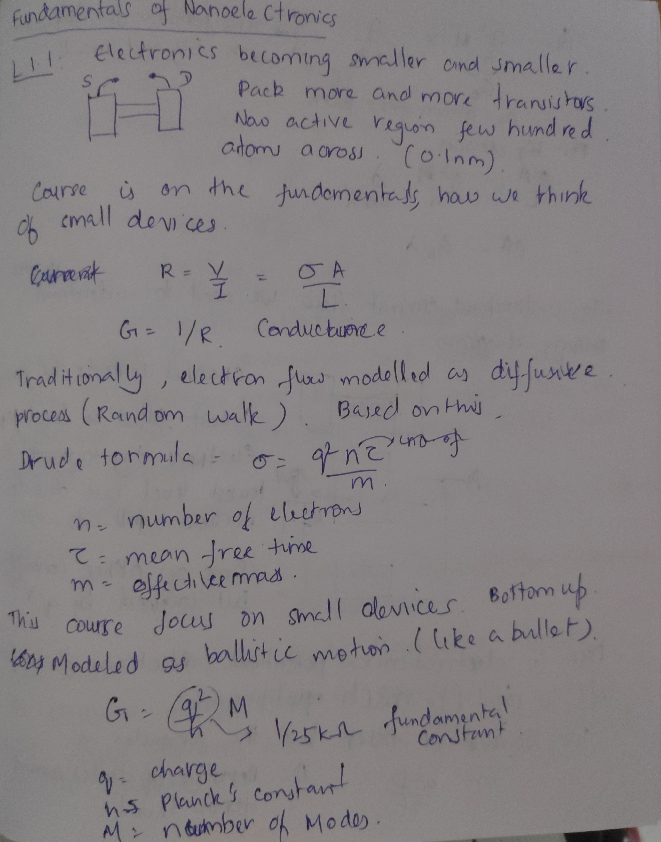 Fundamentals of Nanoelectronics
L1.1. Electronics becoming smaller and smaller.
S D
Pack more and more transistors.
Now active region few hundred
atoms across. (0.1nm)
Course is on the fundamentals, how we think
of small devices.
Current R = V/I = σA/L
G = 1/R Conductance.
Traditionally, electron flow modelled as diffusive
process (Random walk). Based on this.
Drude formula = σ = q² n τ / m.
n = number of electrons
τ = mean free time
m = effective mass.
This course focus on small devices. Bottom up
Modeled as ballistic motion. (like a bullet).
G = (q²/h) M → 1/25kΩ fundamental
constant.
q = charge
h = Planck's constant
M = number of Modes.